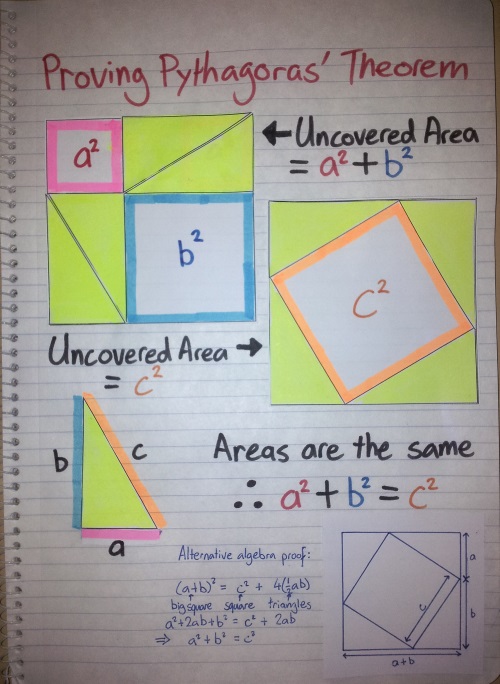 Proving Pythagoras' Theorem
a²
← Uncovered Area
= a² + b²
b²
c²
Uncovered Area →
= c²
b
c
a
Areas are the same
∴ a² + b² = c²
Alternative algebra proof:
(a+b)² = c² + 4(½ab)
big square square triangles
a²+2ab+b² = c² + 2ab
⇒ a² + b² = c²
c
a
b
a+b